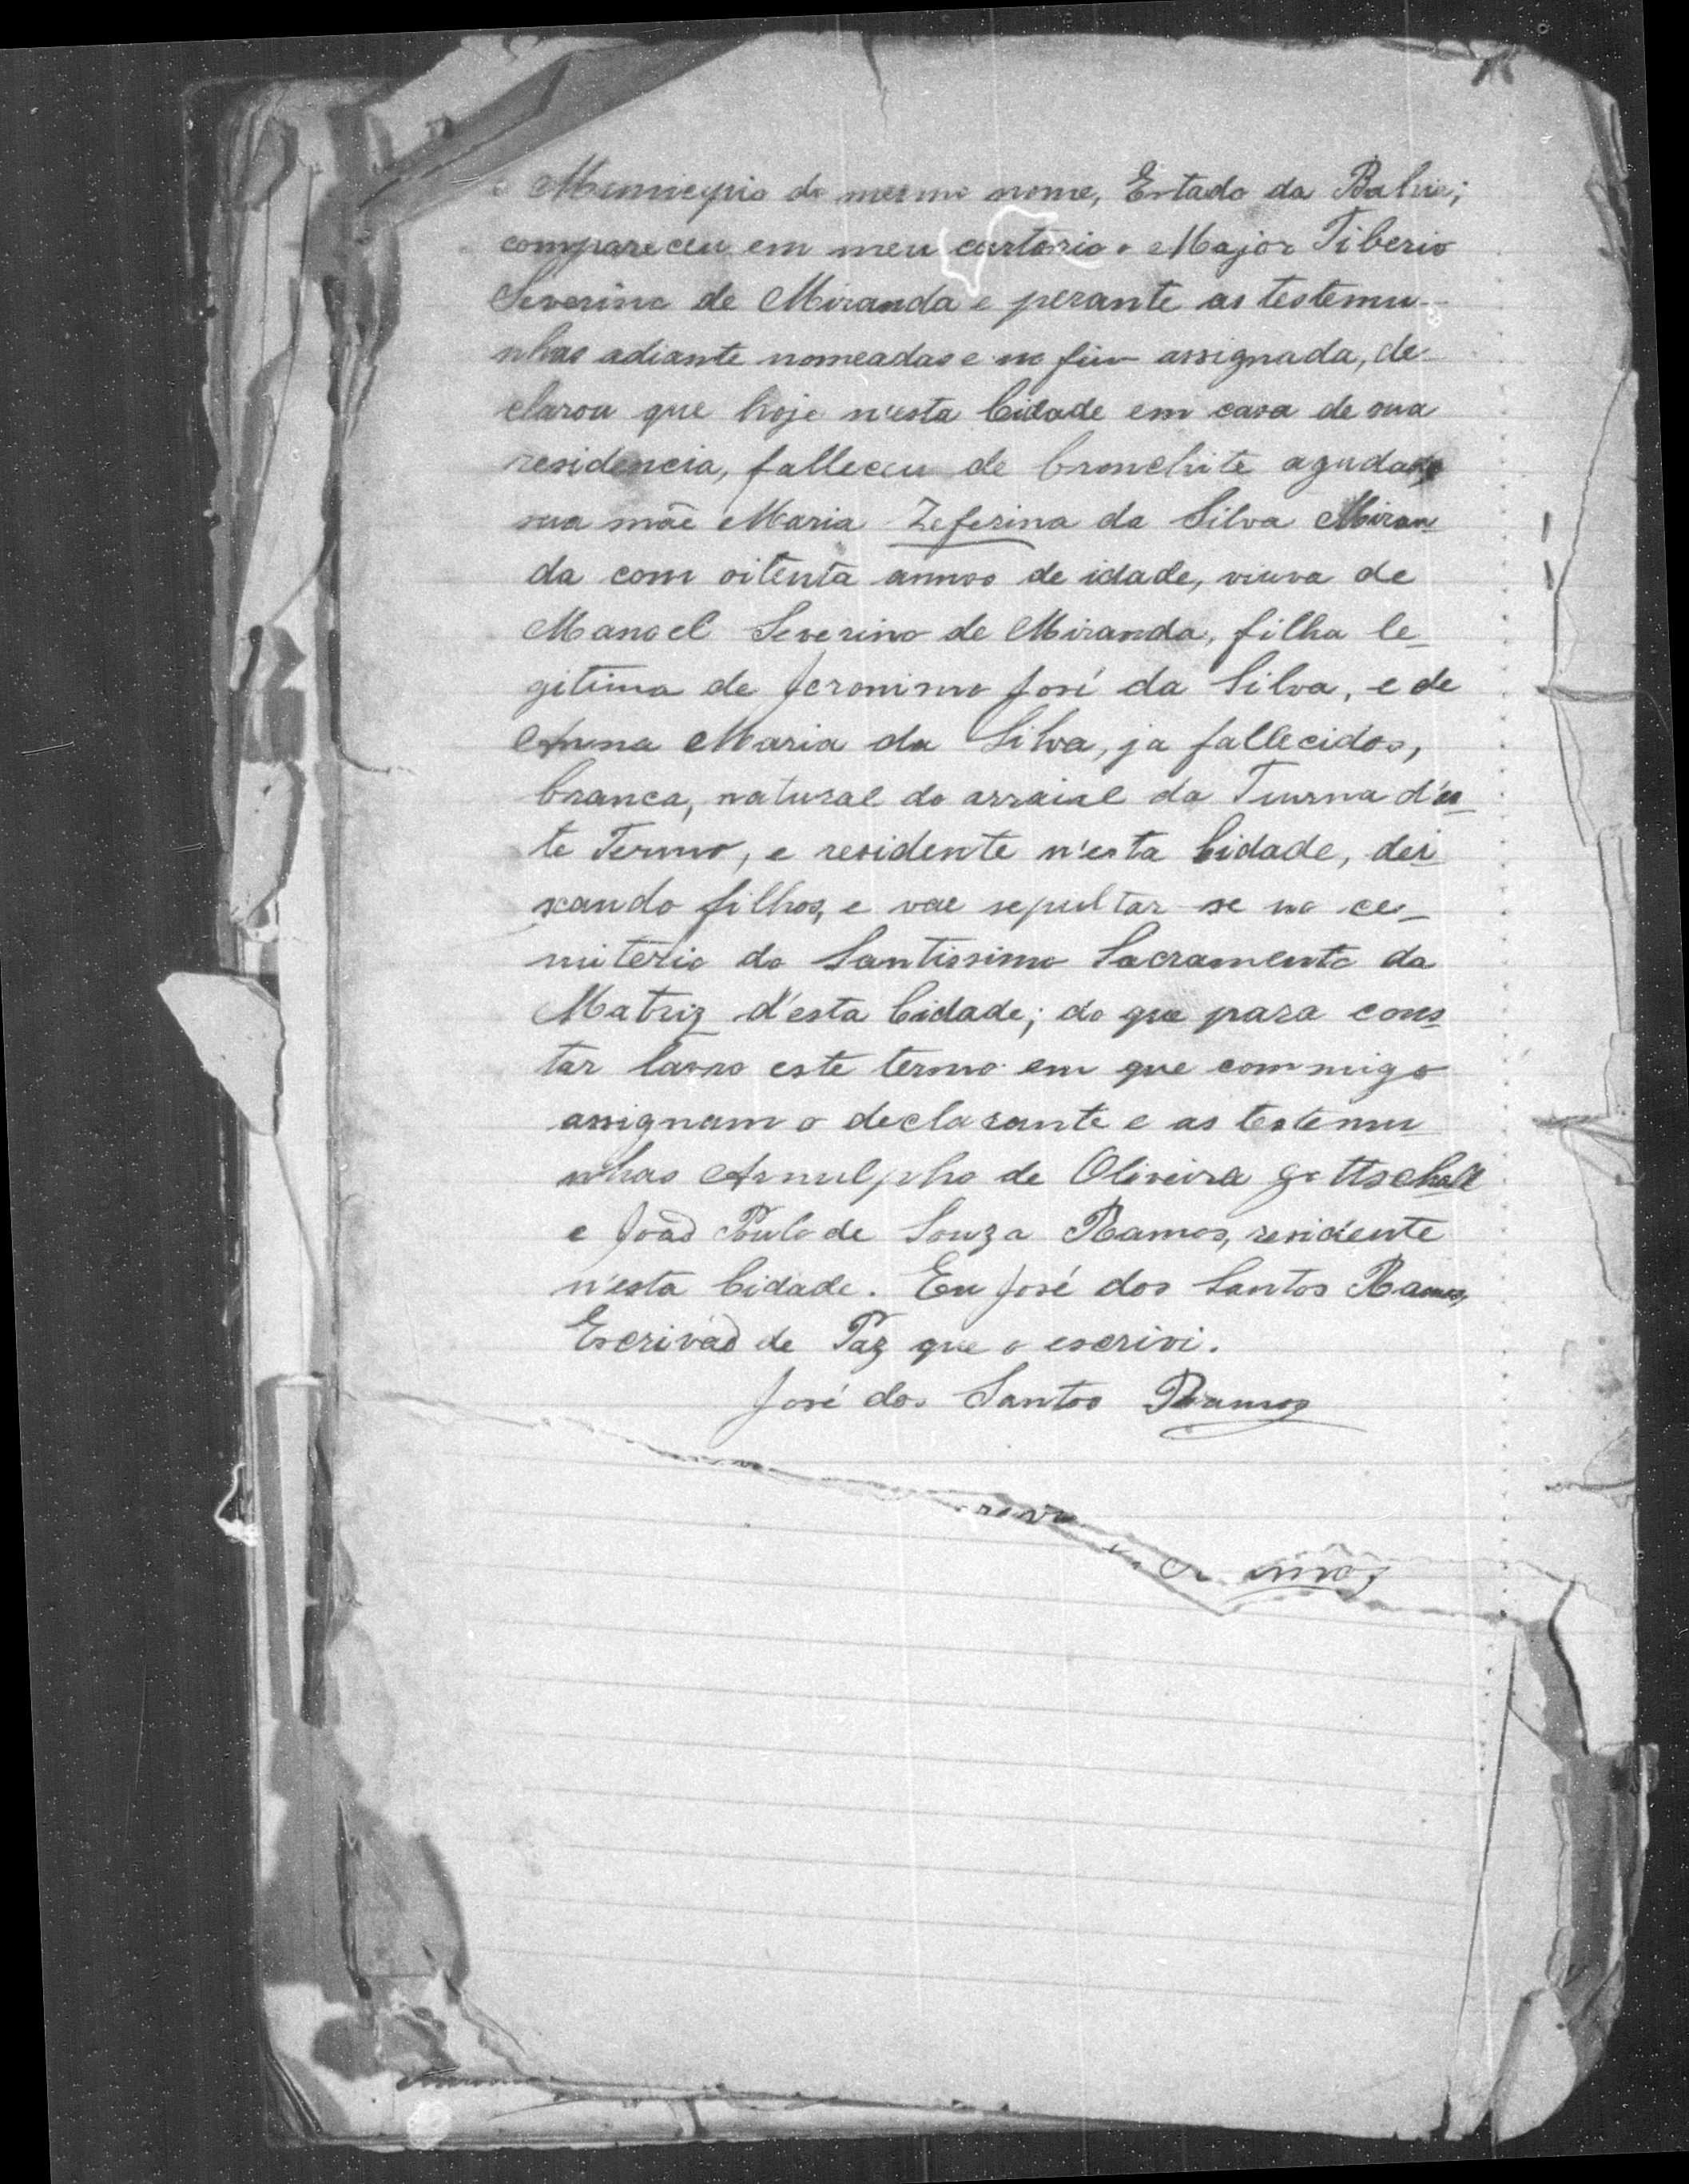 e Municipio do mesmo nome, Estado da Bahia;
compareceu em meu cartorio o Major Tiberio
Severino de Miranda e perante as testemu-
nhas adiante nomeadas e no fim assignada, de-
clarou que hoje n'esta Cidade em casa de sua
residencia, falleceu de bronchite aguda,
sua mãe Maria Zeferina da Silva Miran
da com oitenta annos de idade, viuva de
Manoel Severino de Miranda, filha le-
gitima de Jeronimo José da Silva, e de
Anna Maria da Silva, ja fallecidos,
branca, natural do arraial da Furna d'es-
te Termo, e residente n'esta Cidade, dei
xando filhos, e vae sepultar-se no ce-
miterio do Santissimo Sacramento da
Matriz d'esta Cidade; do que para cons
tar lavro este termo em que commigo
assignam o declarante e as testemu
nhas Arnulpho de Oliveira Gottschall
e João Paulo de Souza Ramos, residente
n'esta Cidade. Eu José dos Santos Ramos,
Escrivão de Paz que o escrivi.
José dos Santos Ramos